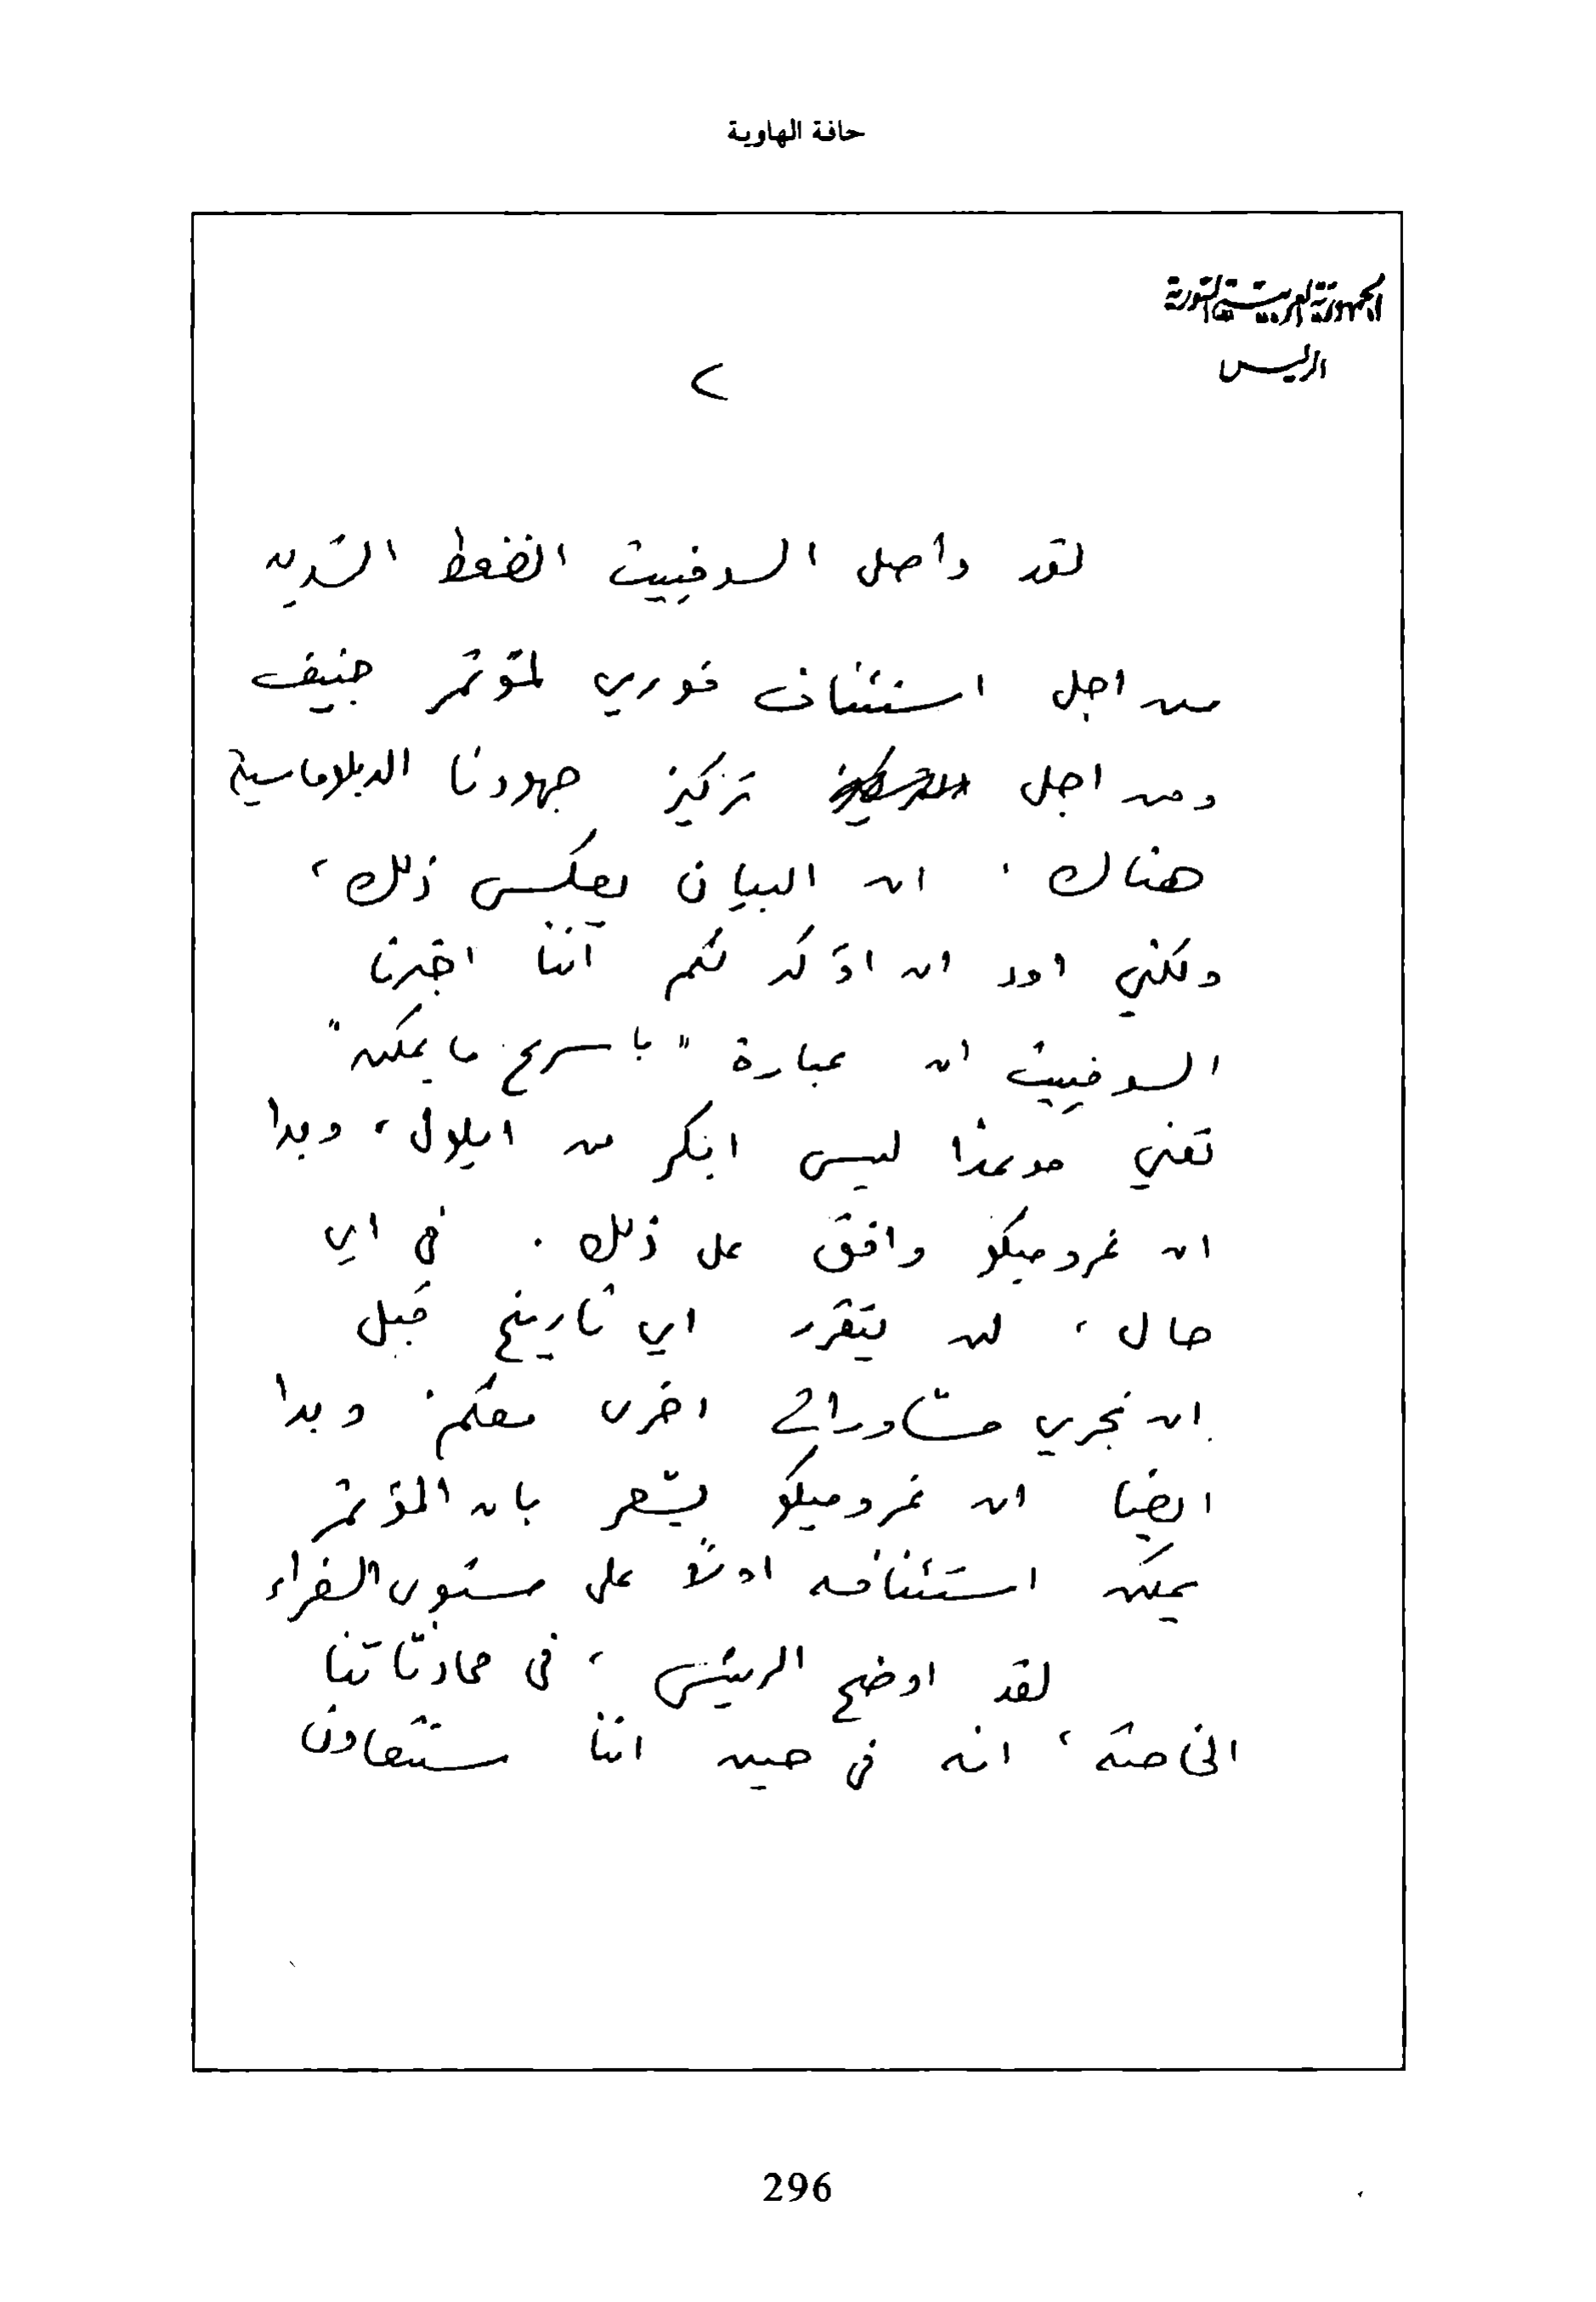 حافة الهاوية
الجمهورية العربية السورية
الرئيس
٢
لقد واصل السوفييت الضغط الشديد
من اجل استئناف فوري لمؤتمر جنيف
ومن اجل تركيز جهودنا الدبلوماسية
هناك . ان البيان يعكس ذلك ،
ولكني اود ان اؤكد لكم أننا اخبرنا
السوفييت ان عبارة " باسرع ما يمكن "
تعني موعدا ليس ابكر من ايلول ، وبدا
ان غروميكو وافق على ذلك . في اي
حال ، لن يتقرر اي تاريخ قبل
ان نجري مشاورات اخرى معكم . وبدا
ايضا ان غروميكو يشعر بان المؤتمر
يمكن استئنافه اولاً على مستوى السفراء
لقد اوضح الرئيس ، في محادثاتنا
الخاصة ، انه في حين اننا سنتعاون
296